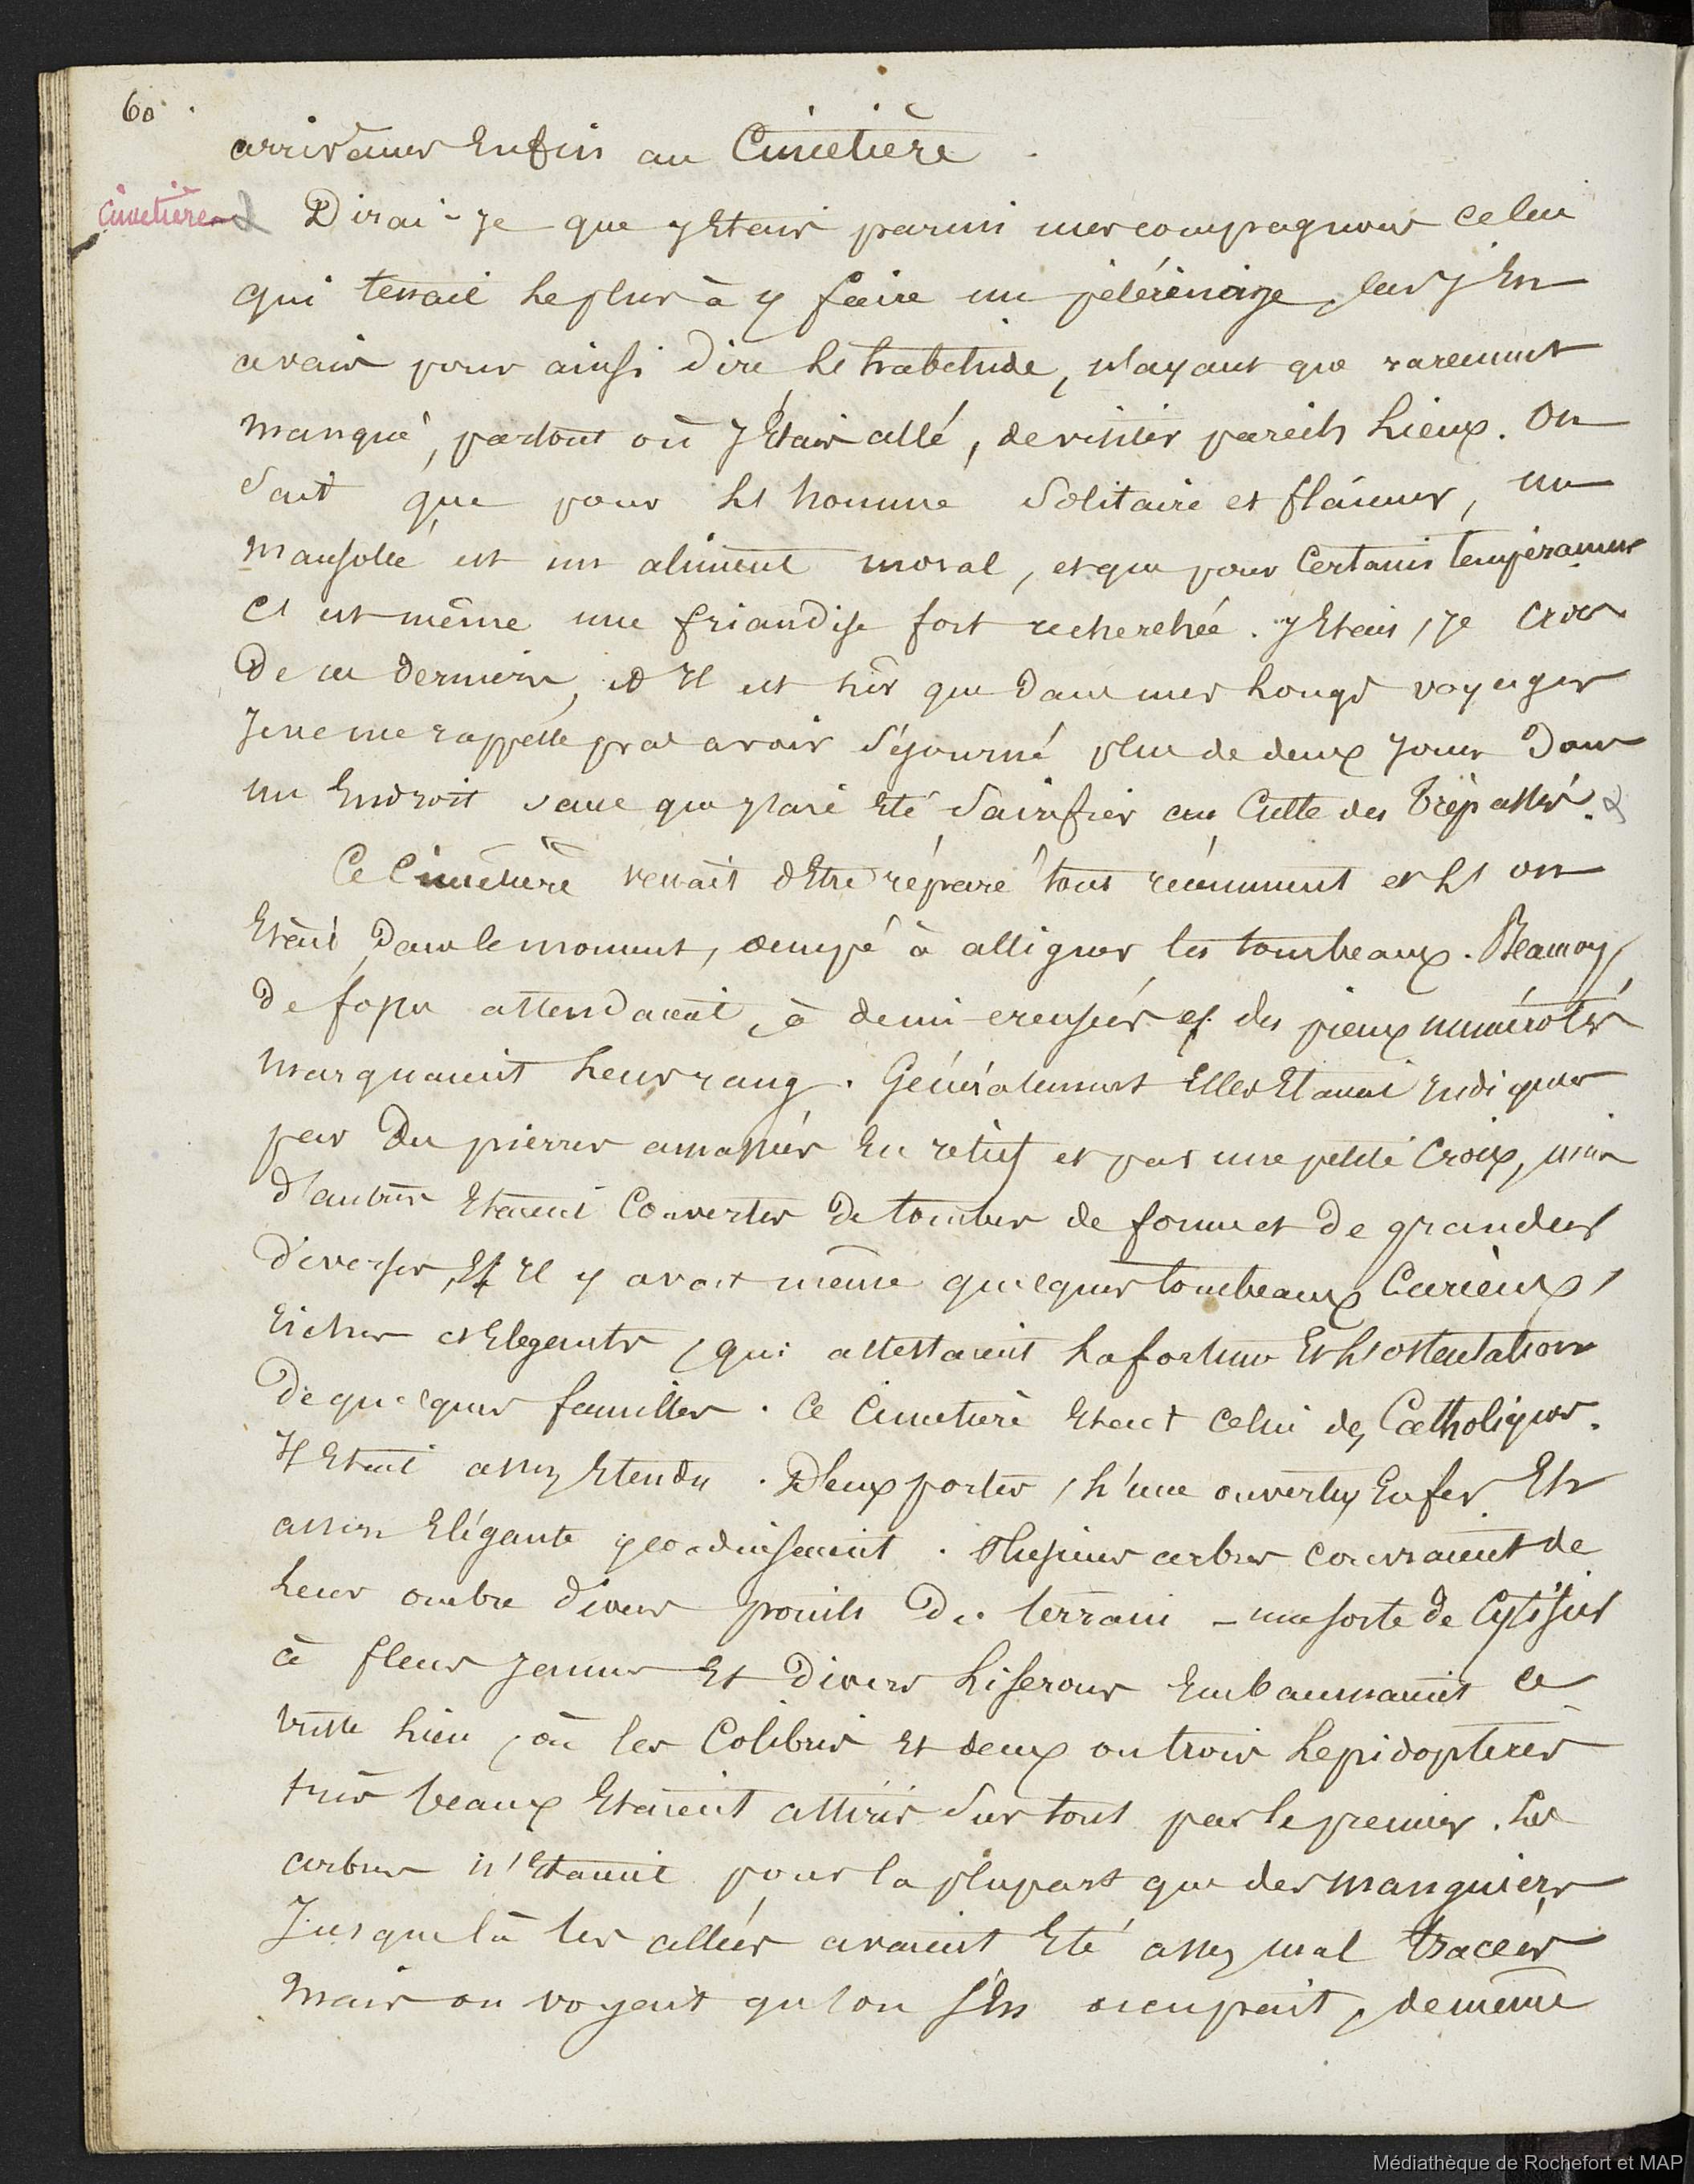 60.
arrivâmes Enfin au Cimetière.
Cimetière
Dirai-je que j'Etais parmi mes compagnons celui
qui tenait le plus à y faire un pélérinage, car j'En
avais pour ainsi dire l'habitude, n'ayant que rarement
manqué, partout où j'Etais allé, de visiter pareils lieux. On
sait que pour l'homme solitaire et flâneur, un
mausolée est un aliment moral, et que pour certains tempéramens
C'est même une friandise fort recherchée. j'Etais, je crois
De ces derniers, et Il est sûr que Dans mes longs voyages
Je ne me rappelle pas avoir séjourné plus de deux jours Dans
un Endroit sans que j'aie Eté Sacrifier au Culte des Trépassés.
Ce Cimetière venait d'Etre réparé tout récemment et l'on
Etait, Dans le moment, occupé à alligner les tombeaux. Beaucoup
De fosses attendaient, à demi-creusées et des pieux numérotés
marquaient leur rang. Généralement Elles Etaient Indiquées
par Des pierres amassées En relief et par une petite Croix, mais
d'autres Etaient Couvertes De tombes de forme et De grandeur
diverses, Et Il y avait même quelques tombeaux Curieux,
riches et Elegants, qui attestaient la fortune Et l'ostentation
De quelques familles. Ce Cimetière Etait celui des Catholiques.
Il Etait assez Etendu. Deux portes, l'une ouverte, En fer Et
assez Elégante y conduisaient. Plusieurs arbres couvraient de
leur ombre divers points Du terrain - une sorte de Cytisus
à fleurs jaunes Et Divers liserons Embaumaient ce
triste lieu, où les Colibris Et deux ou trois lepidoptères
très beaux Etaient attirés surtout par le premier. Les
arbres n'Etaient pour la plupart que des manguiers
Jusque là les allées avaient Eté assez mal tracées
Mais on voyait qu'on s'En occupait, de même
Médiathèque de Rochefort et MAP